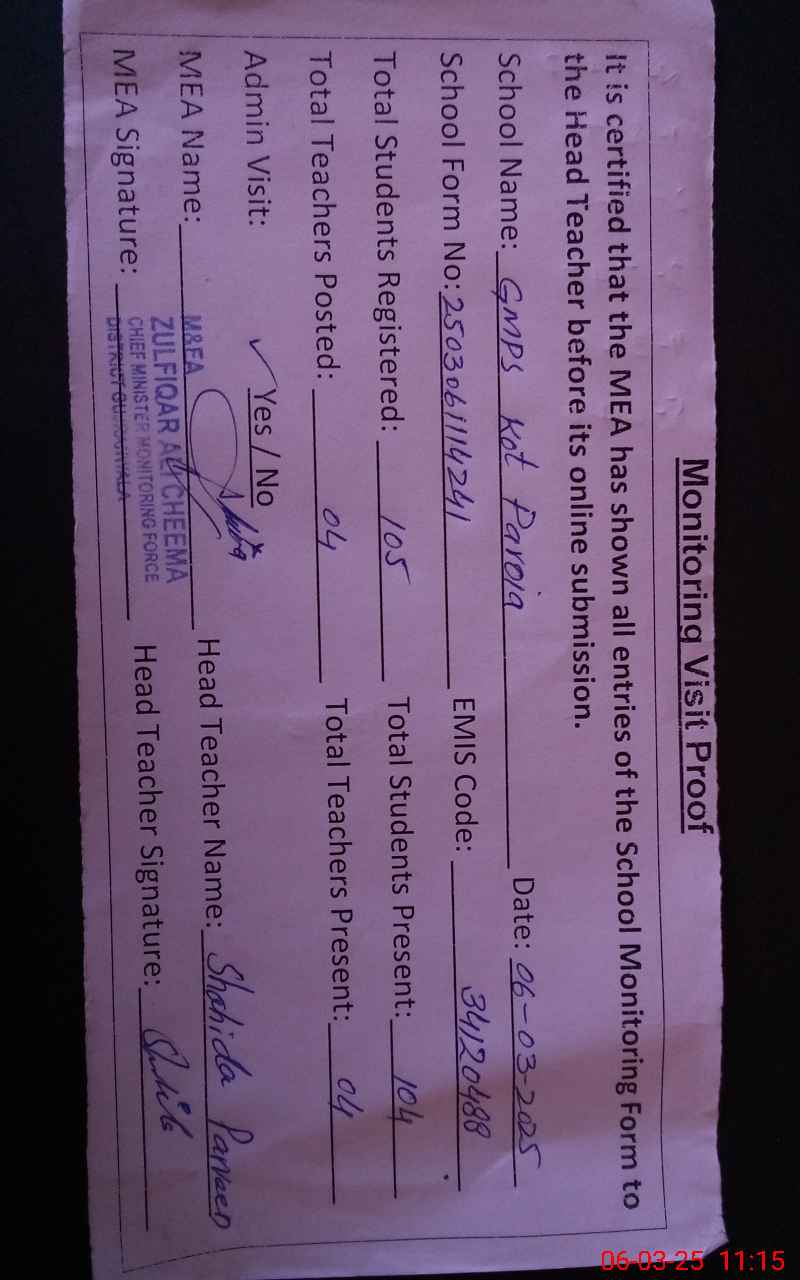 Monitoring Visit Proof
It is certified that the MEA has shown all entries of the School Monitoring Form to
the Head Teacher before its online submission.
School Name: GMPS Kot Paroia Date: 06-03-2025
School Form No: 2503061114241 EMIS Code: 34120488
Total Students Registered: 105 Total Students Present: 104
Total Teachers Posted: 04 Total Teachers Present: 04
Admin Visit: ✓ Yes / No
MEA Name: M&EA Head Teacher Name: Shahida Parveen
ZULFIQAR ALI CHEEMA
CHIEF MINISTER MONITORING FORCE
MEA Signature: DISTRICT Head Teacher Signature:
06-03-25 11:15